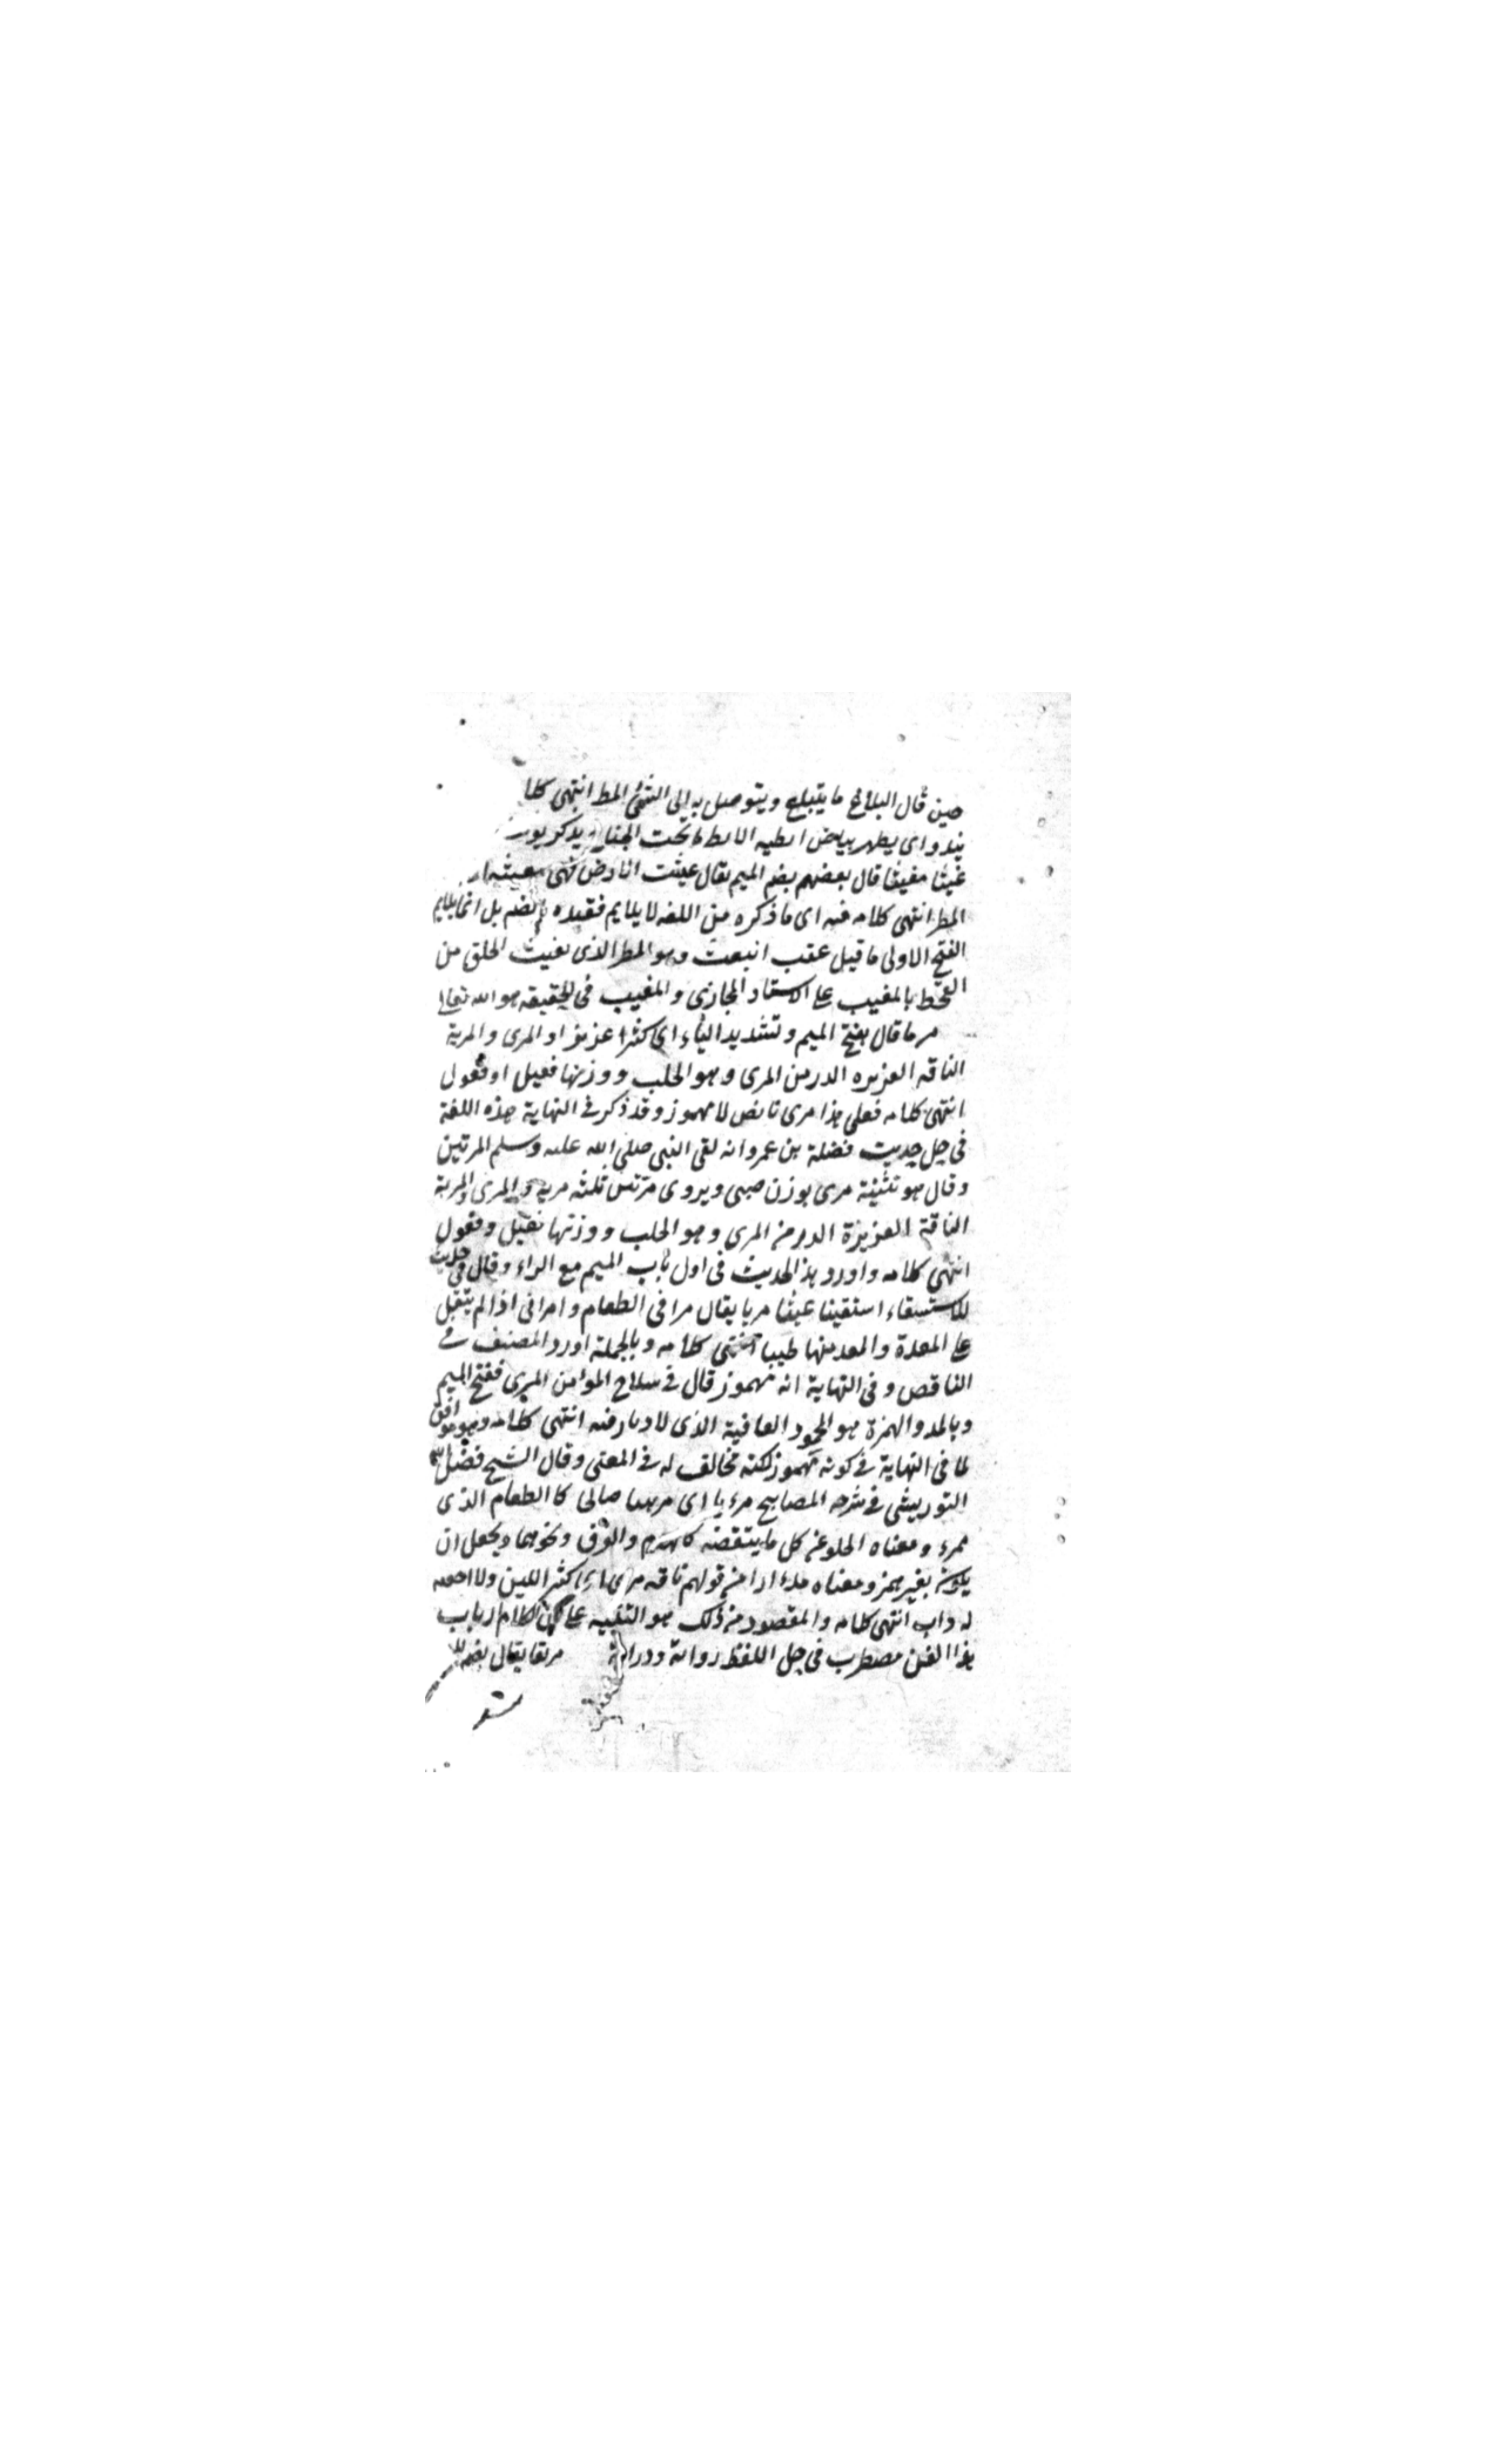 حين قال البلاغ ما يتبلغ ويتوصل به الى الشئ المط انتهى كلا
يبدو اى يظهر بياض ابطيه الابط ما تحت الجناح يذكر
غيثا مغيثا قال بعضهم بضم الميم يقال غيثت الارض فهى مغيثة
المطر انتهى كلامه فيه اى ما ذكره من اللغه لا يلايم فقيده بالضم بل انما يلايم
الفتح الاولى ما قيل عقب انبعث وهو المطر الذى يغيث الخلق من
القحط بالمغيب على الاسناد المجازى والمغيب فى الحقيقه هو الله تعالى
مريا قال بفتح الميم وتشديد الياء اى كثيرا عزيزا والمرى والمرية
الناقه العزيزه الدر من المرى وهو الحلب ووزنها فعيل او فعول
انتهى كلامه فعلى هذا مرى ناقص لا مهموز وقد ذكر فى النهاية هذه اللغة
فى حل حديث فضلة بن عمرو انه لقى النبى صلى الله عليه وسلم المرتين
وقال هو تثنية مرى بوزن صبى ويروى مرتين تثنيه مرية والمرى والمرية
الناقة العزيزة الدر من المرى وهو الحلب ووزنها فعيل وفعول
انتهى كلامه واورد هذا الحديث فى اول باب الميم مع الراء وقال فى حديث
الاستسقاء استقينا غيثا مريا يقال مرانى الطعام وامرانى اذا لم يثقل
على المعدة وانحدر عنها طيبا انتهى كلامه وبالجملة اورد المصنف فى
الناقص وفى النهاية انه مهموز قال فى سلاح المؤمن المرى ففتح الميم
وبالمد والهمزة هو المحمود العافية الذى لا وبا فيه انتهى كلامه وهو موافق
لما فى النهاية فى كونه مهموز لكنه مخالف له فى المعنى وقال الشيخ فضل الله
التوربشتى فى شرحه المصابيح مريا اى مريا صالى كا الطعام الذى
يمرء ومعناه الخلو عن كل ما ينقضه كالهدم والغرق ونحوهما ويحمل ان
يكون بغير همز ومعناه مدرارا من قولهم ناقه مرى اى كثير اللبن ولا احققه
له داب انتهى كلامه والمقصود من ذلك هو التنبيه على ان كلام ارباب
هذا الفن مضطرب فى حل اللفظ رواية ودراية مريعا يقال بضم